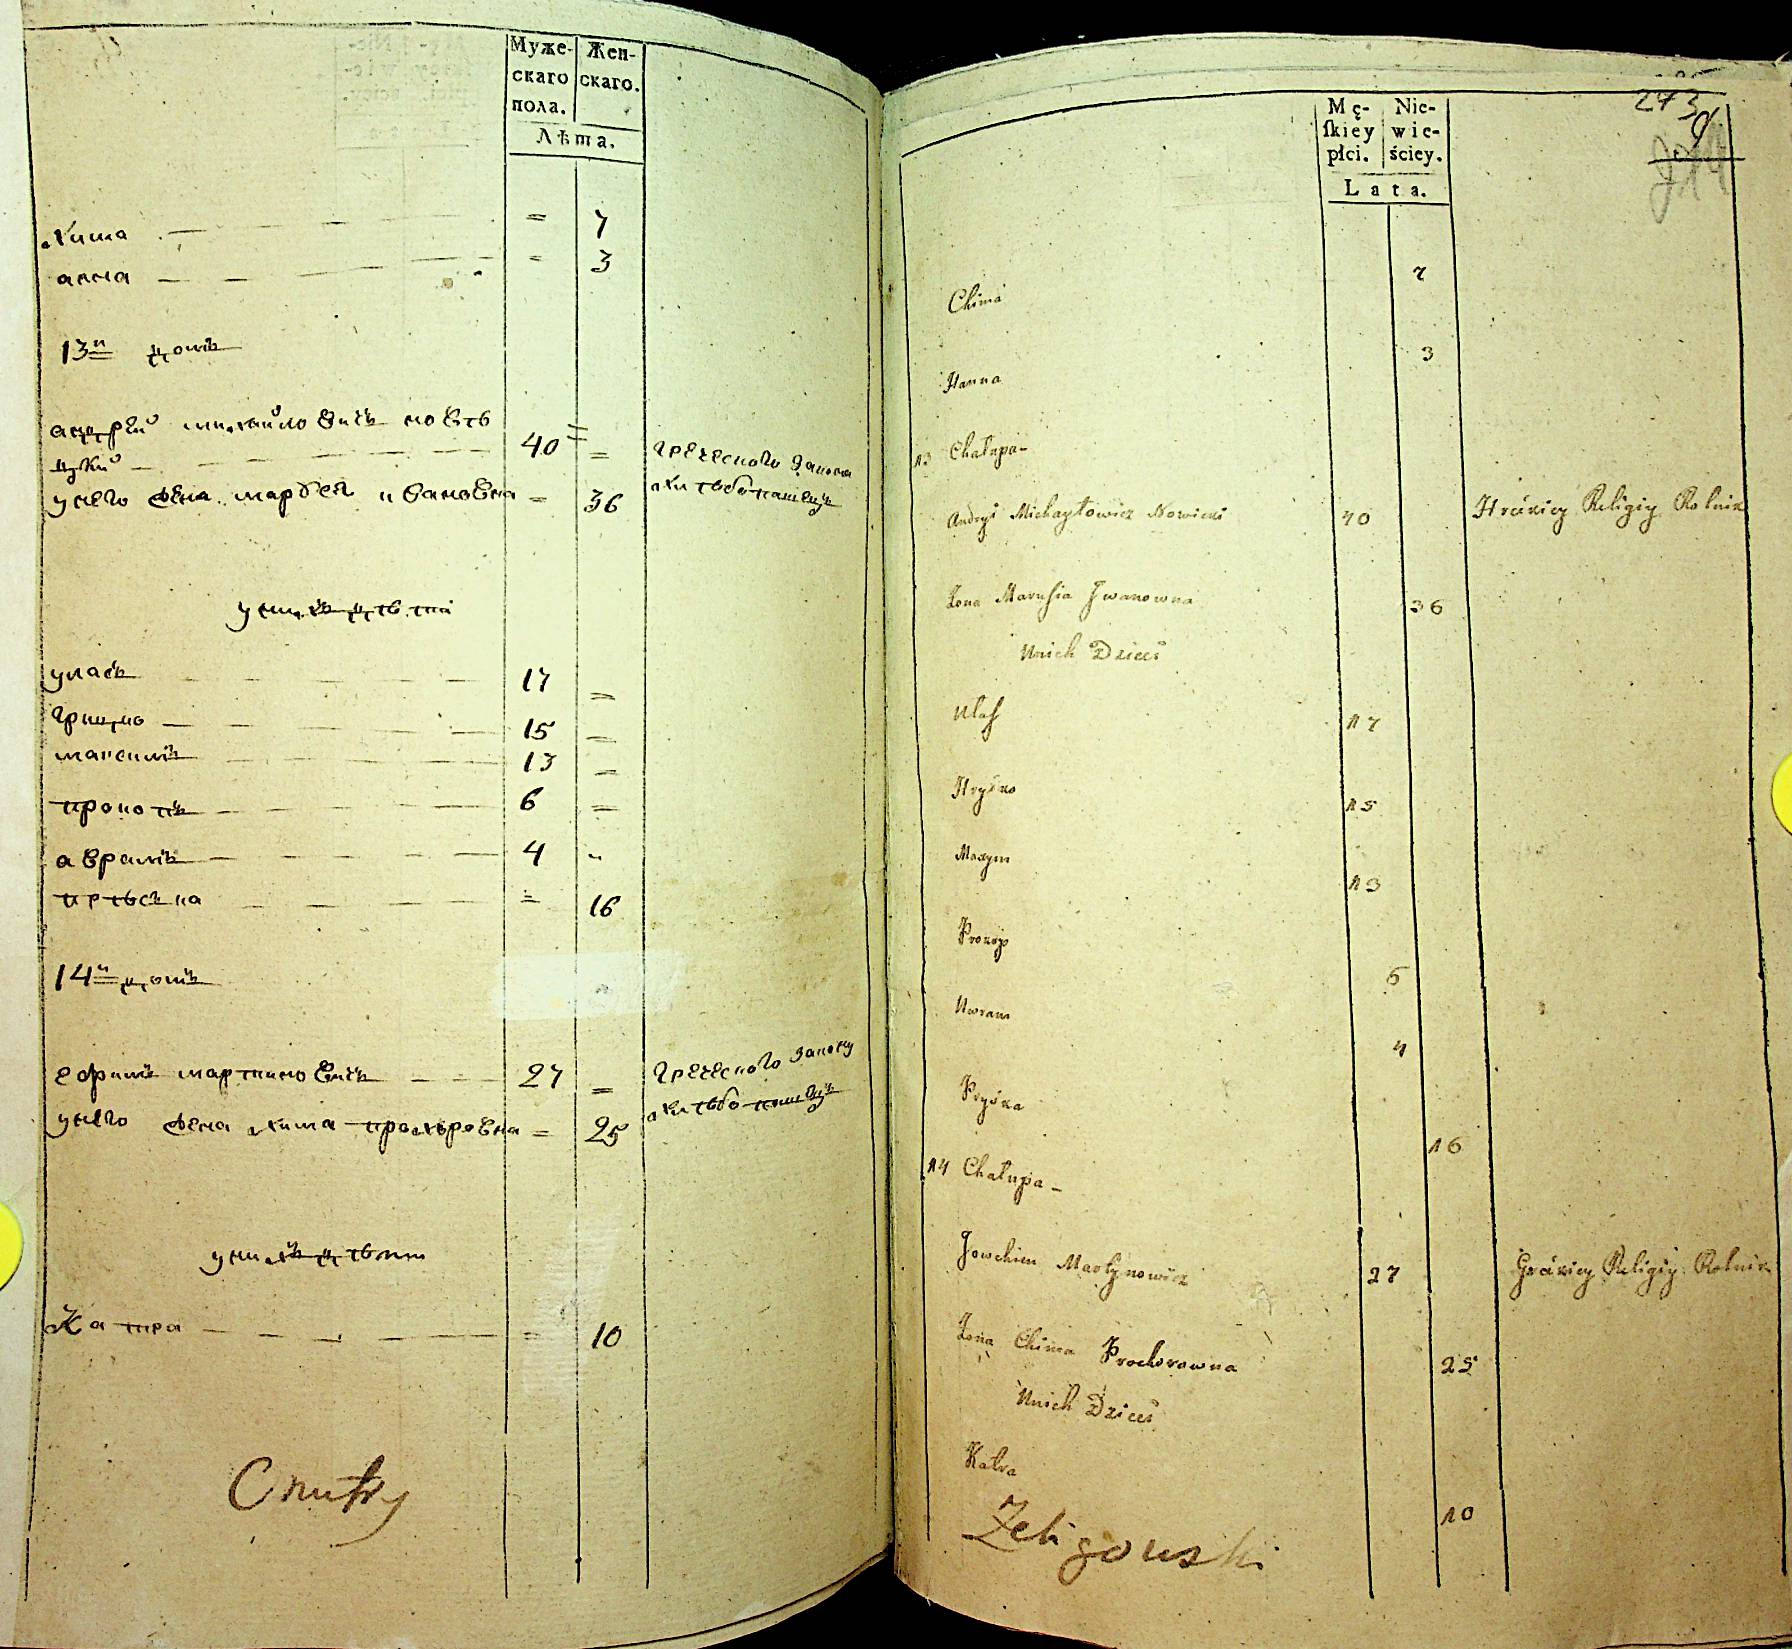 Муже-
скаго
пола.
Жен-
скаго.
Лѣта.
Хима — — — = 7
анна — — — = 3
13й домъ
андрѣй михайловичъ новѣ
цкий — — — 40 = греческого закона
унего жена марѳея ивановна = 36 хлѣбопашецъ
унихъ дѣти
уласъ — — — 17 =
грицко — — — 15 =
максимъ — — — 13 =
прокопъ — — — 6 =
аврамъ — — — 4 =
прыська — — — = 16
14й домъ
ефимъ мартиновичъ — — 27 = греческого закону
унего жена хима прохоровна = 25 хлѣбопашецъ
унихъ дѣти
Катра — — — = 10
Mę-
ſkiey
płci.
Nie-
wie-
ściey.
Lata.
273
Chima 7
Hanna 3
13 Chałupa -
Andryi Michayłowicz Nowicki 40 Hráckiey Religiy Rolnik
Żona Marusia Jwanowna 36
Unich Dzieci
Ułas 17
Hryćko 15
Maxym 13
Prokop 6
Awram 4
Pryśka 16
14 Chałupa -
Jowchim Martynowicz 27 Gráckiey Religiy Rolnik
Żona Chima Prochorowna 25
Unich Dzieci
Katra 10
Żeligowski